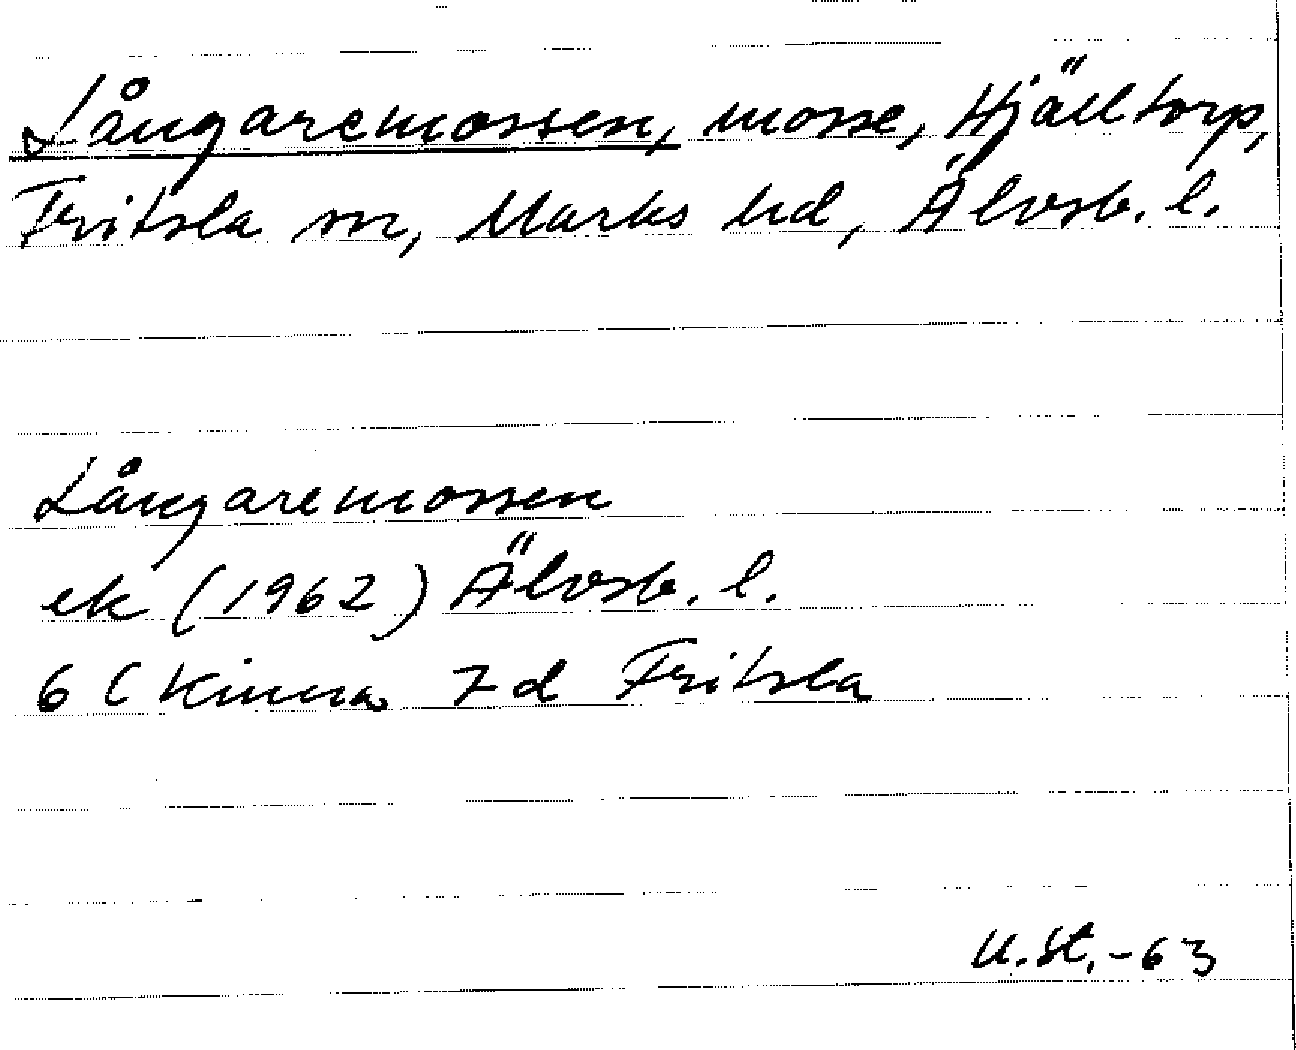 Långaremossen, mosse, Hjälltorp,
Fritsla sn, Marks hd, Älvsb. l.
Långaremossen
ek (1962) Älvsb. l.
6 C Kinna 7d Fritsla
U.St.-63